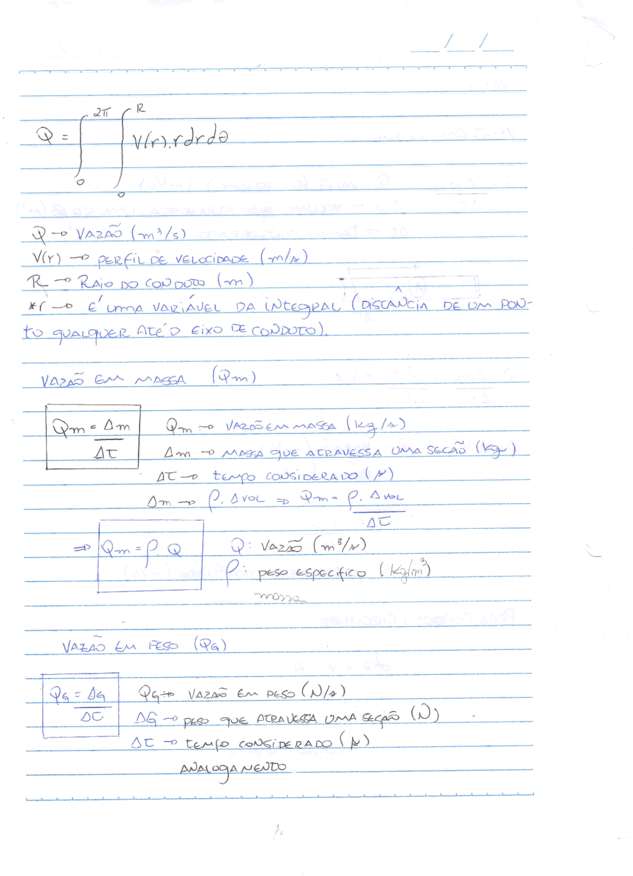 __/__/__
Q = ∫₀^2π ∫₀^R V(r).rdrdθ
Q → VAZÃO (m³/s)
V(r) → PERFIL DE VELOCIDADE (m/s)
R → RAIO DO CONDUTO (m)
*r → É UMA VARIÁVEL DA INTEGRAL (DISTÂNCIA DE UM PON-
TO QUALQUER ATÉ O EIXO DE CONDUTO).
VAZÃO EM MASSA (Qm)
Qm = Δm/Δt Qm → VAZÃO EM MASSA (kg/s)
Δm → MASSA QUE ATRAVESSA UMA SECÃO (kg)
Δt → TEMPO CONSIDERADO (s)
Δm → ρ.ΔVOL ⇒ Qm = ρ.ΔVOL/Δt
⇒ Qm = ρ.Q Q: VAZÃO (m³/s)
ρ: PESO ESPECÍFICO (kg/m³)
massa
VAZÃO EM PESO (QG)
QG = ΔG/Δt QG → VAZÃO EM PESO (N/s)
ΔG → PESO QUE ATRAVESSA UMA SEÇÃO (N)
Δt → TEMPO CONSIDERADO (s)
ANALOGAMENTO